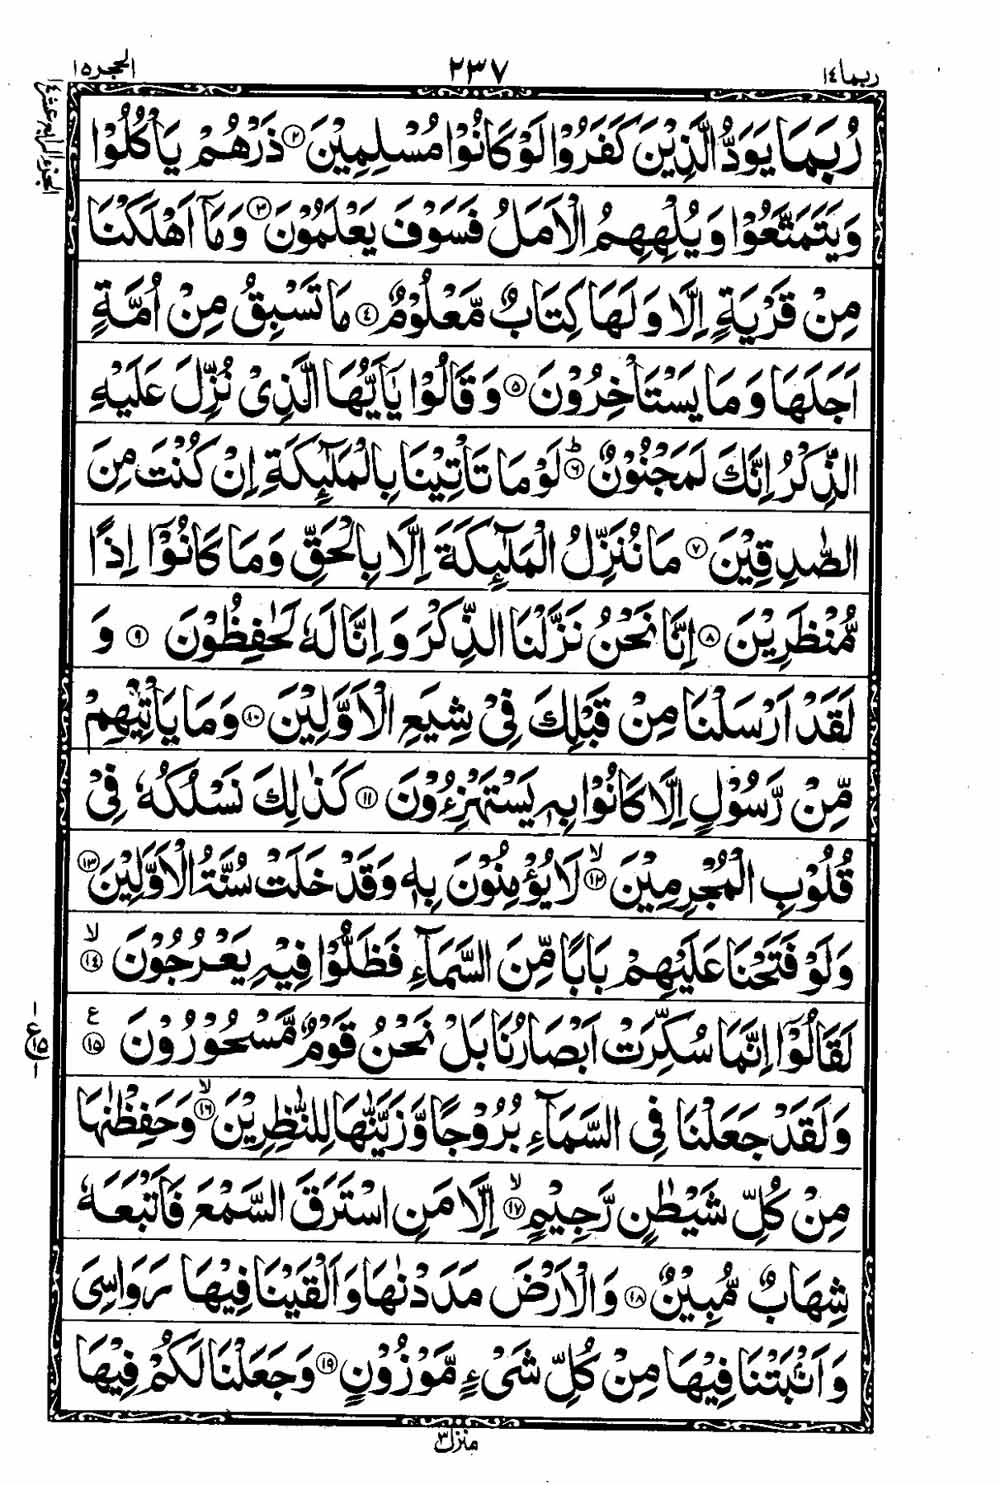 ربما ١٤
٢٣٧
الحجر ١٥
الجزء الرابع عشر ١٤
رُبَمَا يَوَدُّ الَّذِيْنَ كَفَرُوْا لَوْ كَانُوْا مُسْلِمِيْنَ ٢ ذَرْهُمْ يَاْكُلُوْا
وَيَتَمَتَّعُوْا وَيُلْهِهِمُ الْاَمَلُ فَسَوْفَ يَعْلَمُوْنَ ٣ وَمَآ اَهْلَكْنَا
مِنْ قَرْيَةٍ اِلَّا وَلَهَا كِتَابٌ مَّعْلُوْمٌ ٤ مَا تَسْبِقُ مِنْ اُمَّةٍ
اَجَلَهَا وَمَا يَسْتَاْخِرُوْنَ ٥ وَقَالُوْا يٰٓاَيُّهَا الَّذِىْ نُزِّلَ عَلَيْهِ
الذِّكْرُ اِنَّكَ لَمَجْنُوْنٌ ؕ ٦ لَوْ مَا تَاْتِيْنَا بِالْمَلٰٓئِكَةِ اِنْ كُنْتَ مِنَ
الصّٰدِقِيْنَ ٧ مَا نُنَزِّلُ الْمَلٰٓئِكَةَ اِلَّا بِالْحَقِّ وَمَا كَانُوْٓا اِذًا
مُّنْظَرِيْنَ ٨ اِنَّا نَحْنُ نَزَّلْنَا الذِّكْرَ وَاِنَّا لَهٗ لَحٰفِظُوْنَ ٩ وَ
لَقَدْ اَرْسَلْنَا مِنْ قَبْلِكَ فِىْ شِيَعِ الْاَوَّلِيْنَ ١٠ وَمَا يَاْتِيْهِمْ
مِّنْ رَّسُوْلٍ اِلَّا كَانُوْا بِهٖ يَسْتَهْزِءُوْنَ ١١ كَذٰلِكَ نَسْلُكُهٗ فِىْ
قُلُوْبِ الْمُجْرِمِيْنَ ۙ ١٢ لَا يُؤْمِنُوْنَ بِهٖ وَقَدْ خَلَتْ سُنَّةُ الْاَوَّلِيْنَ ١٣
وَلَوْ فَتَحْنَا عَلَيْهِمْ بَابًا مِّنَ السَّمَآءِ فَظَلُّوْا فِيْهِ يَعْرُجُوْنَ ۙ ١٤
لَقَالُوْٓا اِنَّمَا سُكِّرَتْ اَبْصَارُنَا بَلْ نَحْنُ قَوْمٌ مَّسْحُوْرُوْنَ ع ١٥
ع ١٥
وَلَقَدْ جَعَلْنَا فِى السَّمَآءِ بُرُوْجًا وَّزَيَّنّٰهَا لِلنّٰظِرِيْنَ ۙ ١٦ وَحَفِظْنٰهَا
مِنْ كُلِّ شَيْطٰنٍ رَّجِيْمٍ ۙ ١٧ اِلَّا مَنِ اسْتَرَقَ السَّمْعَ فَاَتْبَعَهٗ
شِهَابٌ مُّبِيْنٌ ١٨ وَالْاَرْضَ مَدَدْنٰهَا وَاَلْقَيْنَا فِيْهَا رَوَاسِىَ
وَاَنْۢبَتْنَا فِيْهَا مِنْ كُلِّ شَىْءٍ مَّوْزُوْنٍ ١٩ وَجَعَلْنَا لَكُمْ فِيْهَا
منزل ٣